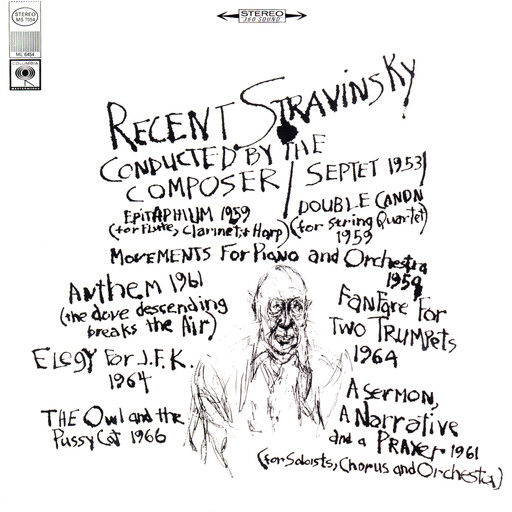 STEREO
MS 7054
ML 6454
COLUMBIA
STEREO
360 SOUND
RECENT STRAVINSKY
CONDUCTED BY THE
COMPOSER
SEPTET 1953
EPITAPHIUM 1959
(for Flute, Clarinet, + Harp)
DOUBLE CANON
(for String Quartet)
1959
MOVEMENTS For Piano and Orchestra
1959
Anthem 1961
(the dove descending
breaks the Air)
FanFare For
TWO TRUMPets
1964
ELegy For J.F.K.
1964
A SERMON,
A Narrative
and a PRAYer 1961
(for Soloists, Chorus and Orchestra)
THE Owl and the
PussyCat 1966